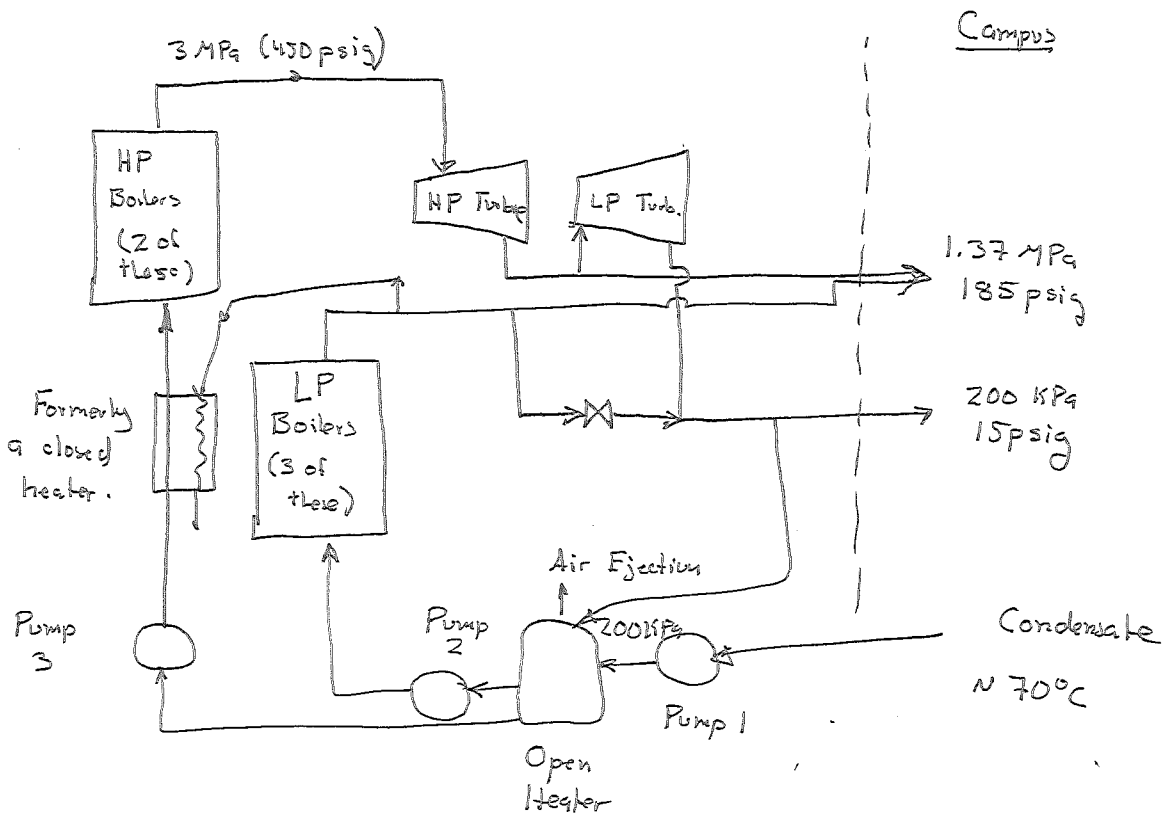 Campus
3 MPa (450 psig)
HP
Boilers
(2 of
these)
HP Turbine
LP Turb.
1.37 MPa
185 psig
Formerly
a closed
heater.
LP
Boilers
(3 of
these)
200 KPa
15 psig
Air Ejection
Pump
3
Pump
2
200KPa
Condensate
~ 70°C
Pump 1
Open
Heater